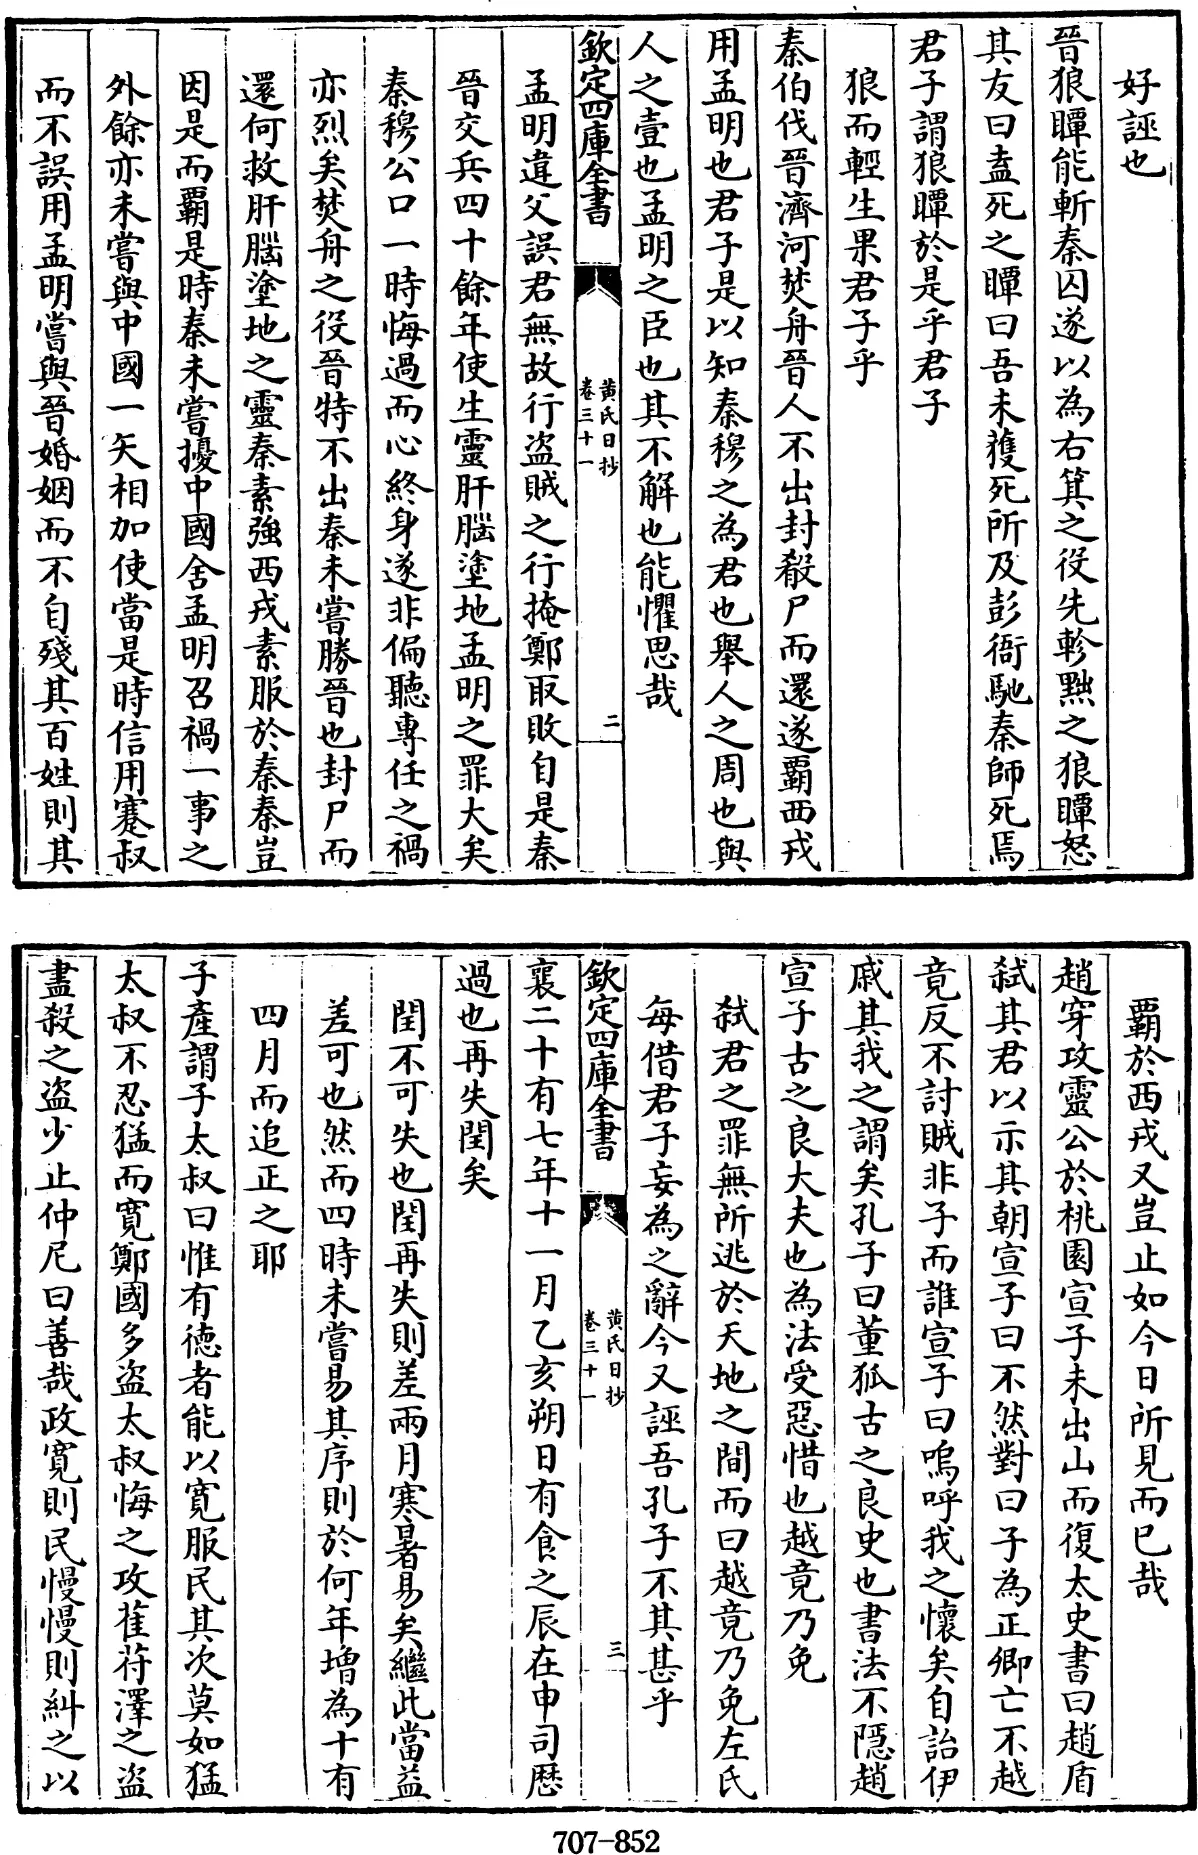 好誣也
晉狼瞫能斬秦囚遂以為右箕之役先軫黜之狼瞫怒
其友曰盍死之瞫曰吾未獲死所及彭衙馳秦師死焉
君子謂狼瞫於是乎君子
狼而輕生果君子乎
秦伯伐晉濟河焚舟晉人不出封殽尸而還遂覇西戎
用孟明也君子是以知秦穆之為君也舉人之周也與
人之壹也孟明之臣也其不解也能懼思哉
欽定四庫全書
黄氏日抄
卷三十一
二
孟明違父誤君無故行盗賊之行掩鄭取敗自是秦
晉交兵四十餘年使生靈肝腦塗地孟明之罪大矣
秦穆公口一時悔過而心終身遂非偏聽專任之禍
亦烈矣焚舟之役晉特不出秦未嘗勝晉也封尸而
還何救肝腦塗地之靈秦素強西戎素服於秦秦豈
因是而覇是時秦未嘗擾中國舍孟明召禍一事之
外餘亦未嘗與中國一矢相加使當是時信用蹇叔
而不誤用孟明嘗與晉婚姻而不自殘其百姓則其
覇於西戎又豈止如今日所見而已哉
趙穿攻靈公於桃園宣子未出山而復太史書曰趙盾
弑其君以示其朝宣子曰不然對曰子為正卿亡不越
竟反不討賊非子而誰宣子曰嗚呼我之懷矣自詒伊
戚其我之謂矣孔子曰董狐古之良史也書法不隱趙
宣子古之良大夫也為法受惡惜也越竟乃免
弑君之罪無所逃於天地之間而曰越竟乃免左氏
每借君子妄為之辭今又誣吾孔子不其甚乎
欽定四庫全書
黄氏日抄
卷三十一
三
襄二十有七年十一月乙亥朔日有食之辰在申司厯
過也再失閏矣
閏不可失也閏再失則差兩月寒暑易矣繼此當益
差可也然而四時未嘗易其序則於何年增為十有
四月而追正之耶
子產謂子太叔曰惟有徳者能以寛服民其次莫如猛
太叔不忍猛而寛鄭國多盗太叔悔之攻萑苻澤之盗
盡殺之盗少止仲尼曰善哉政寛則民慢慢則糾之以
707-852